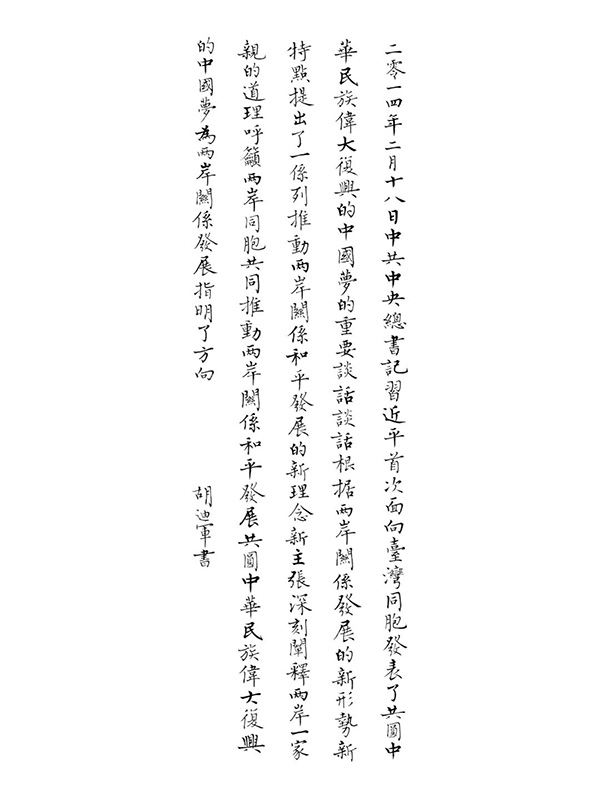 二零一四年二月十八日中共中央總書記習近平首次面向臺灣同胞發表了共圓中
華民族偉大復興的中國夢的重要談話談話根据兩岸關係發展的新形勢新
特點提出了一係列推動兩岸關係和平發展的新理念新主張深刻闡釋兩岸一家
親的道理呼籲兩岸同胞共同推動兩岸關係和平發展共圓中華民族偉大復興
的中國夢為兩岸關係發展指明了方向
胡迪軍書